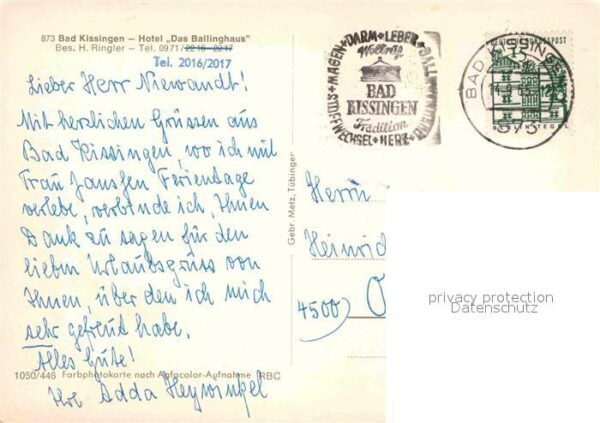 873 Bad Kissingen — Hotel „Das Ballinghaus"
Bes. H. Ringler — Tel. 0971/2216-2217
Tel. 2016/2017
Lieber Herr Niewandt!
Mit herzlichen Grüssen aus
Bad Kissingen, wo ich mit
Frau Janssen Ferientage
verlebe, verbinde ich, Ihnen
Dank zu sagen für den
lieben Urlaubsgruss von
Ihnen, über den ich mich
sehr gefreut habe.
Alles Gute!
Ihre Adda Heywinkel
1050/446 Farbphotokarte nach Agfacolor-Aufnahme RBC
Gebr. Metz, Tübingen
MAGEN+DARM+LEBER+
STOFFWECHSEL+HERZ+
Weltruf
BAD
KISSINGEN
Tradition
DEUTSCHE BUNDESPOST
15
BAD KISSINGEN
873
Herrn
Heinrich
4500
privacy protection
Datenschutz